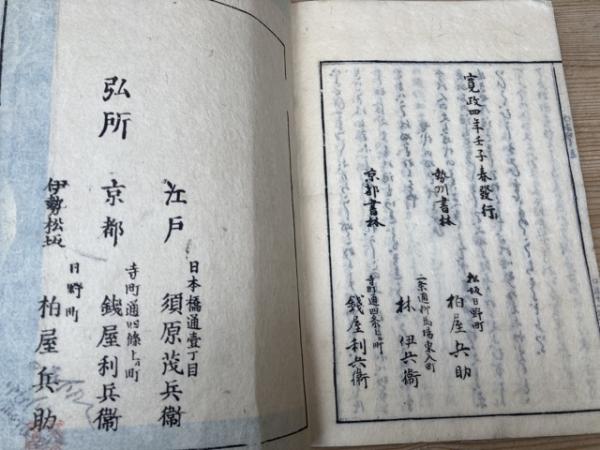 寛政四年壬子春發行
勢州書林
松坂日野町
柏屋兵助
京都書林
二条通柳馬場東入町
林伊兵衞
寺町通四条上ル町
錢屋利兵衞
弘所
江戸
日本橋通壹丁目
須原茂兵衞
京都
寺町通四條上ル町
錢屋利兵衞
伊勢松坂
日野町
柏屋兵助